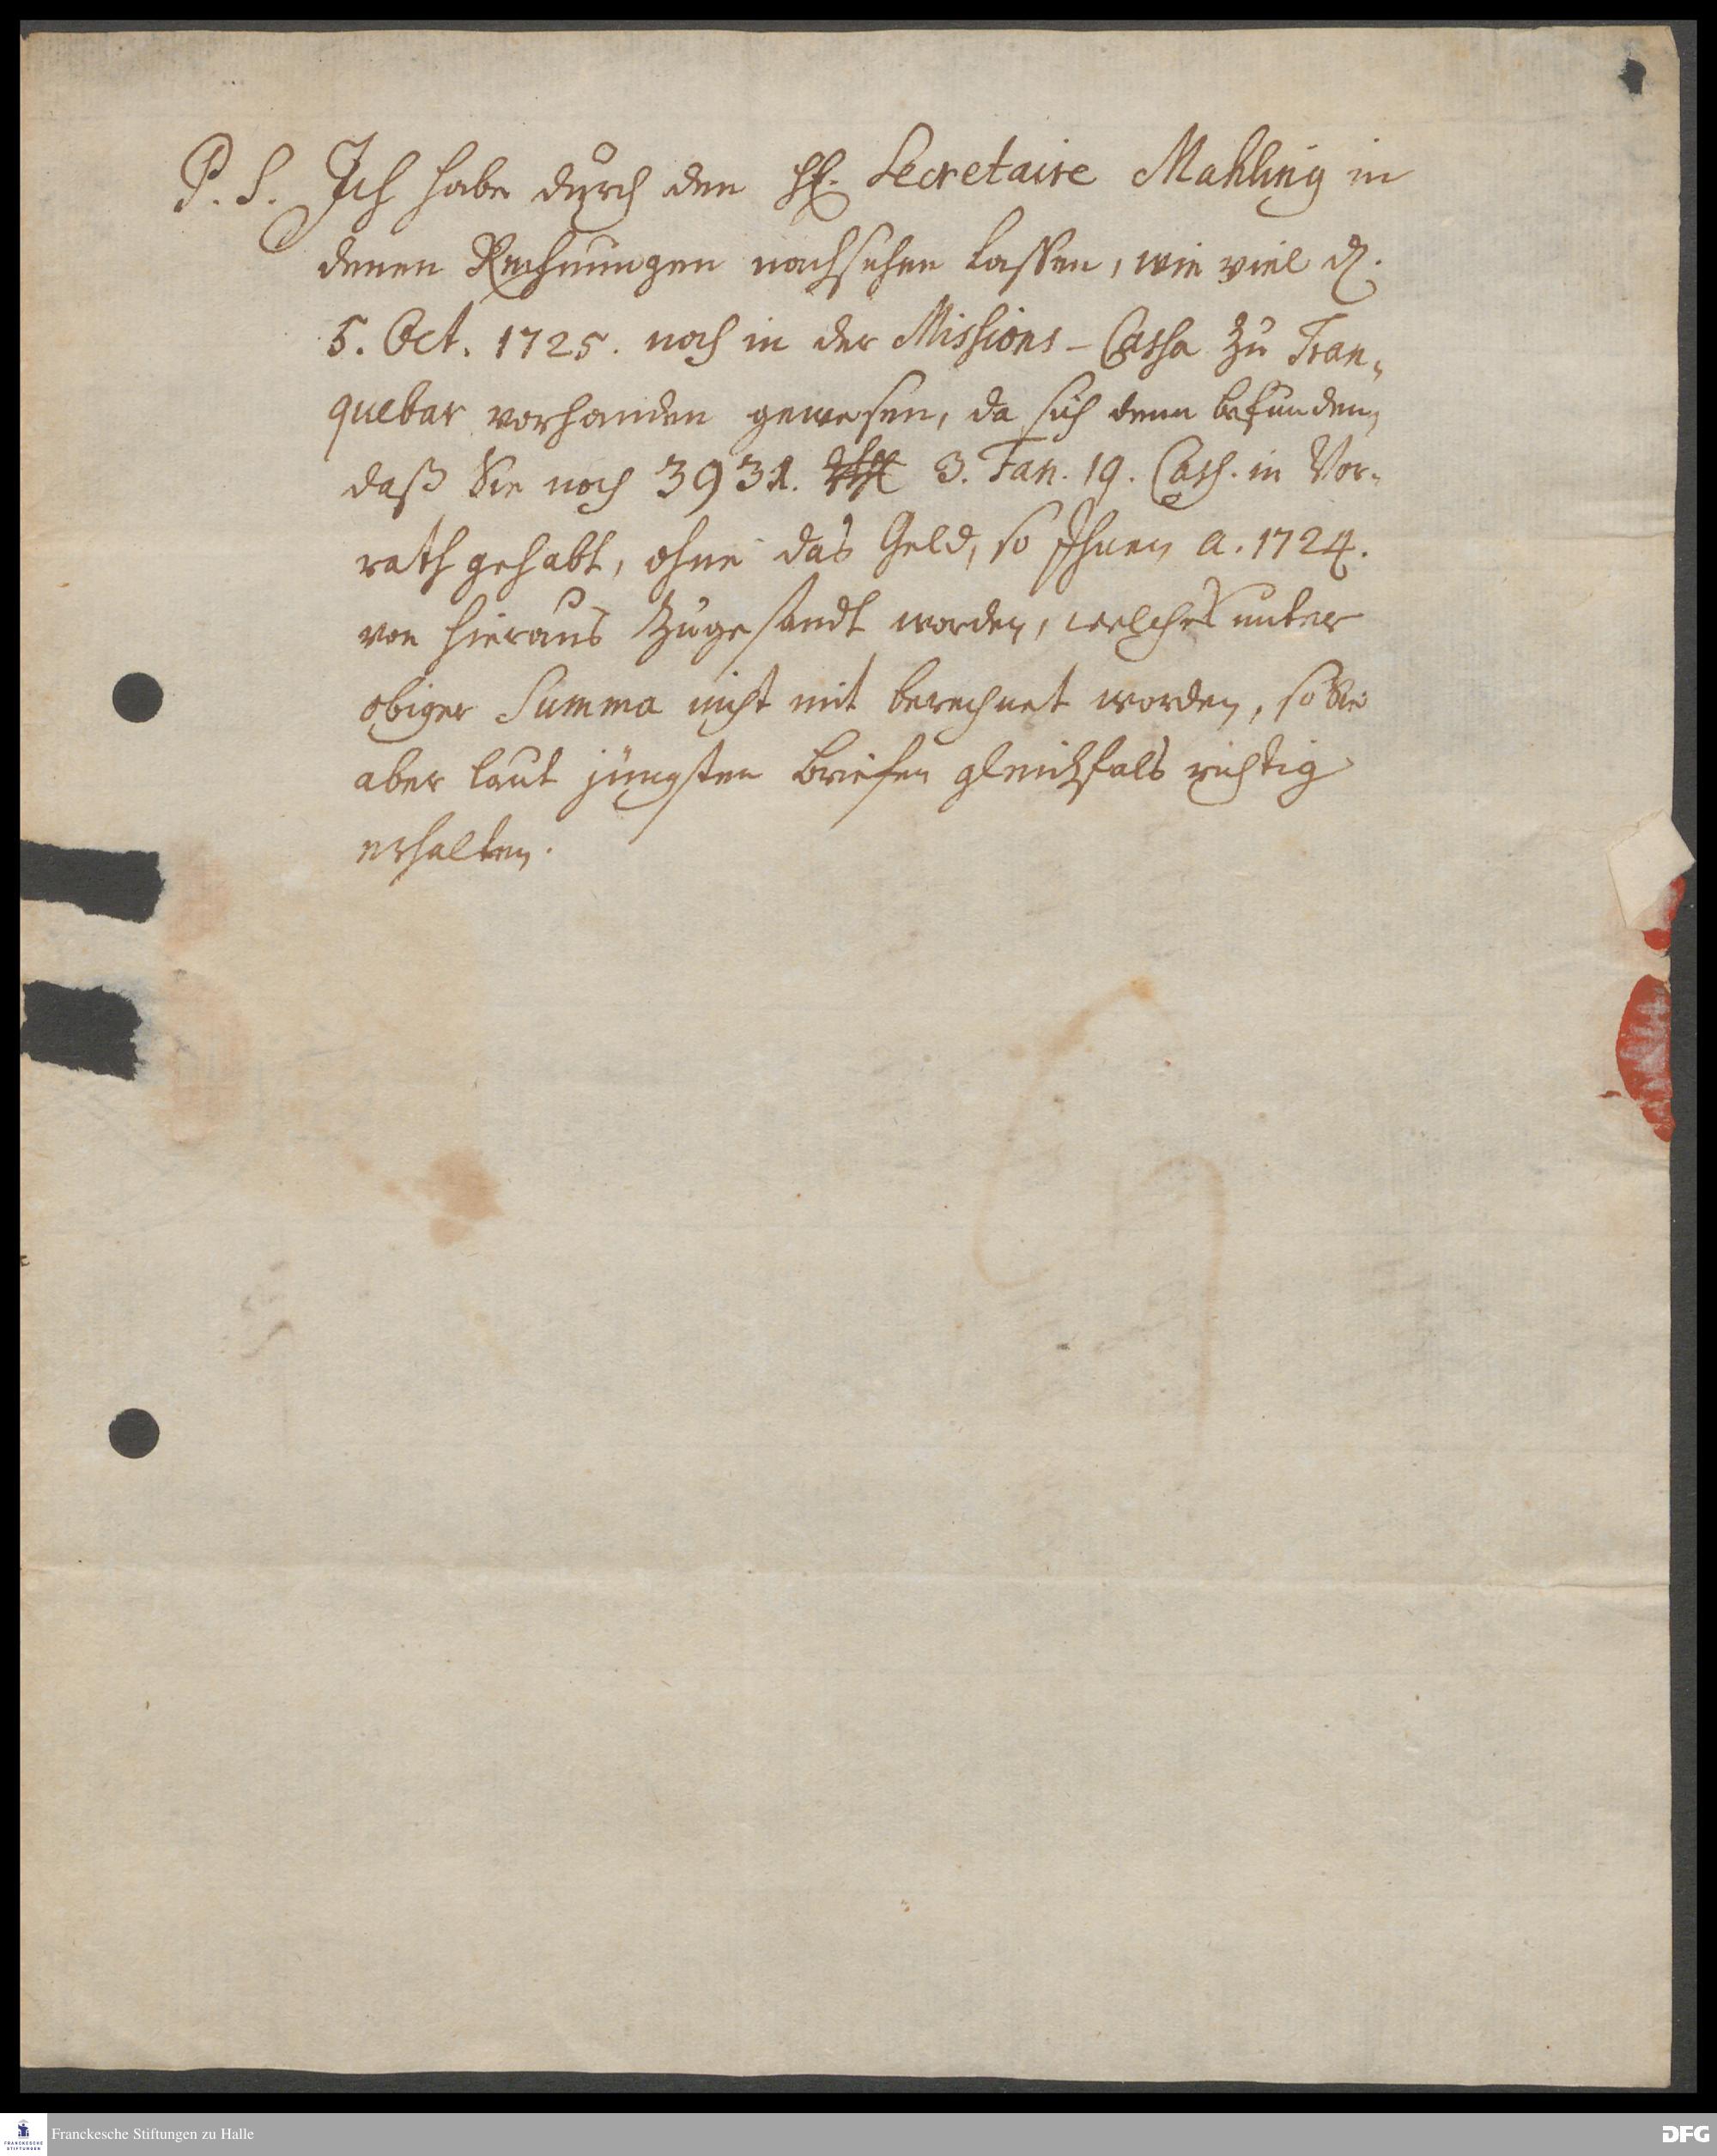 P. S. Ich habe durch den H. Secretaire Mahling in
denen Rechnungen nachsehen lassen, wie viel d.
5. Oct. 1725. noch in der Missions-Cassa zu Tran„
quebar vorhanden gewesen, da sich denn befunden,
daß Sie noch 3931. 3. Fan. 19. Cash. in Vor„
rath gehabt, ohne das Geld, so Ihnen a. 1724.
von hieraus zugesandt worden, welches unter
obiger Summa nicht mit berechnet worden, so Sie
aber laut jüngsten Briefen gleichfals richtig
erhalten.
Franckesche Stiftungen zu Halle
FRANCKESCHE
STIFTUNGEN
DFG